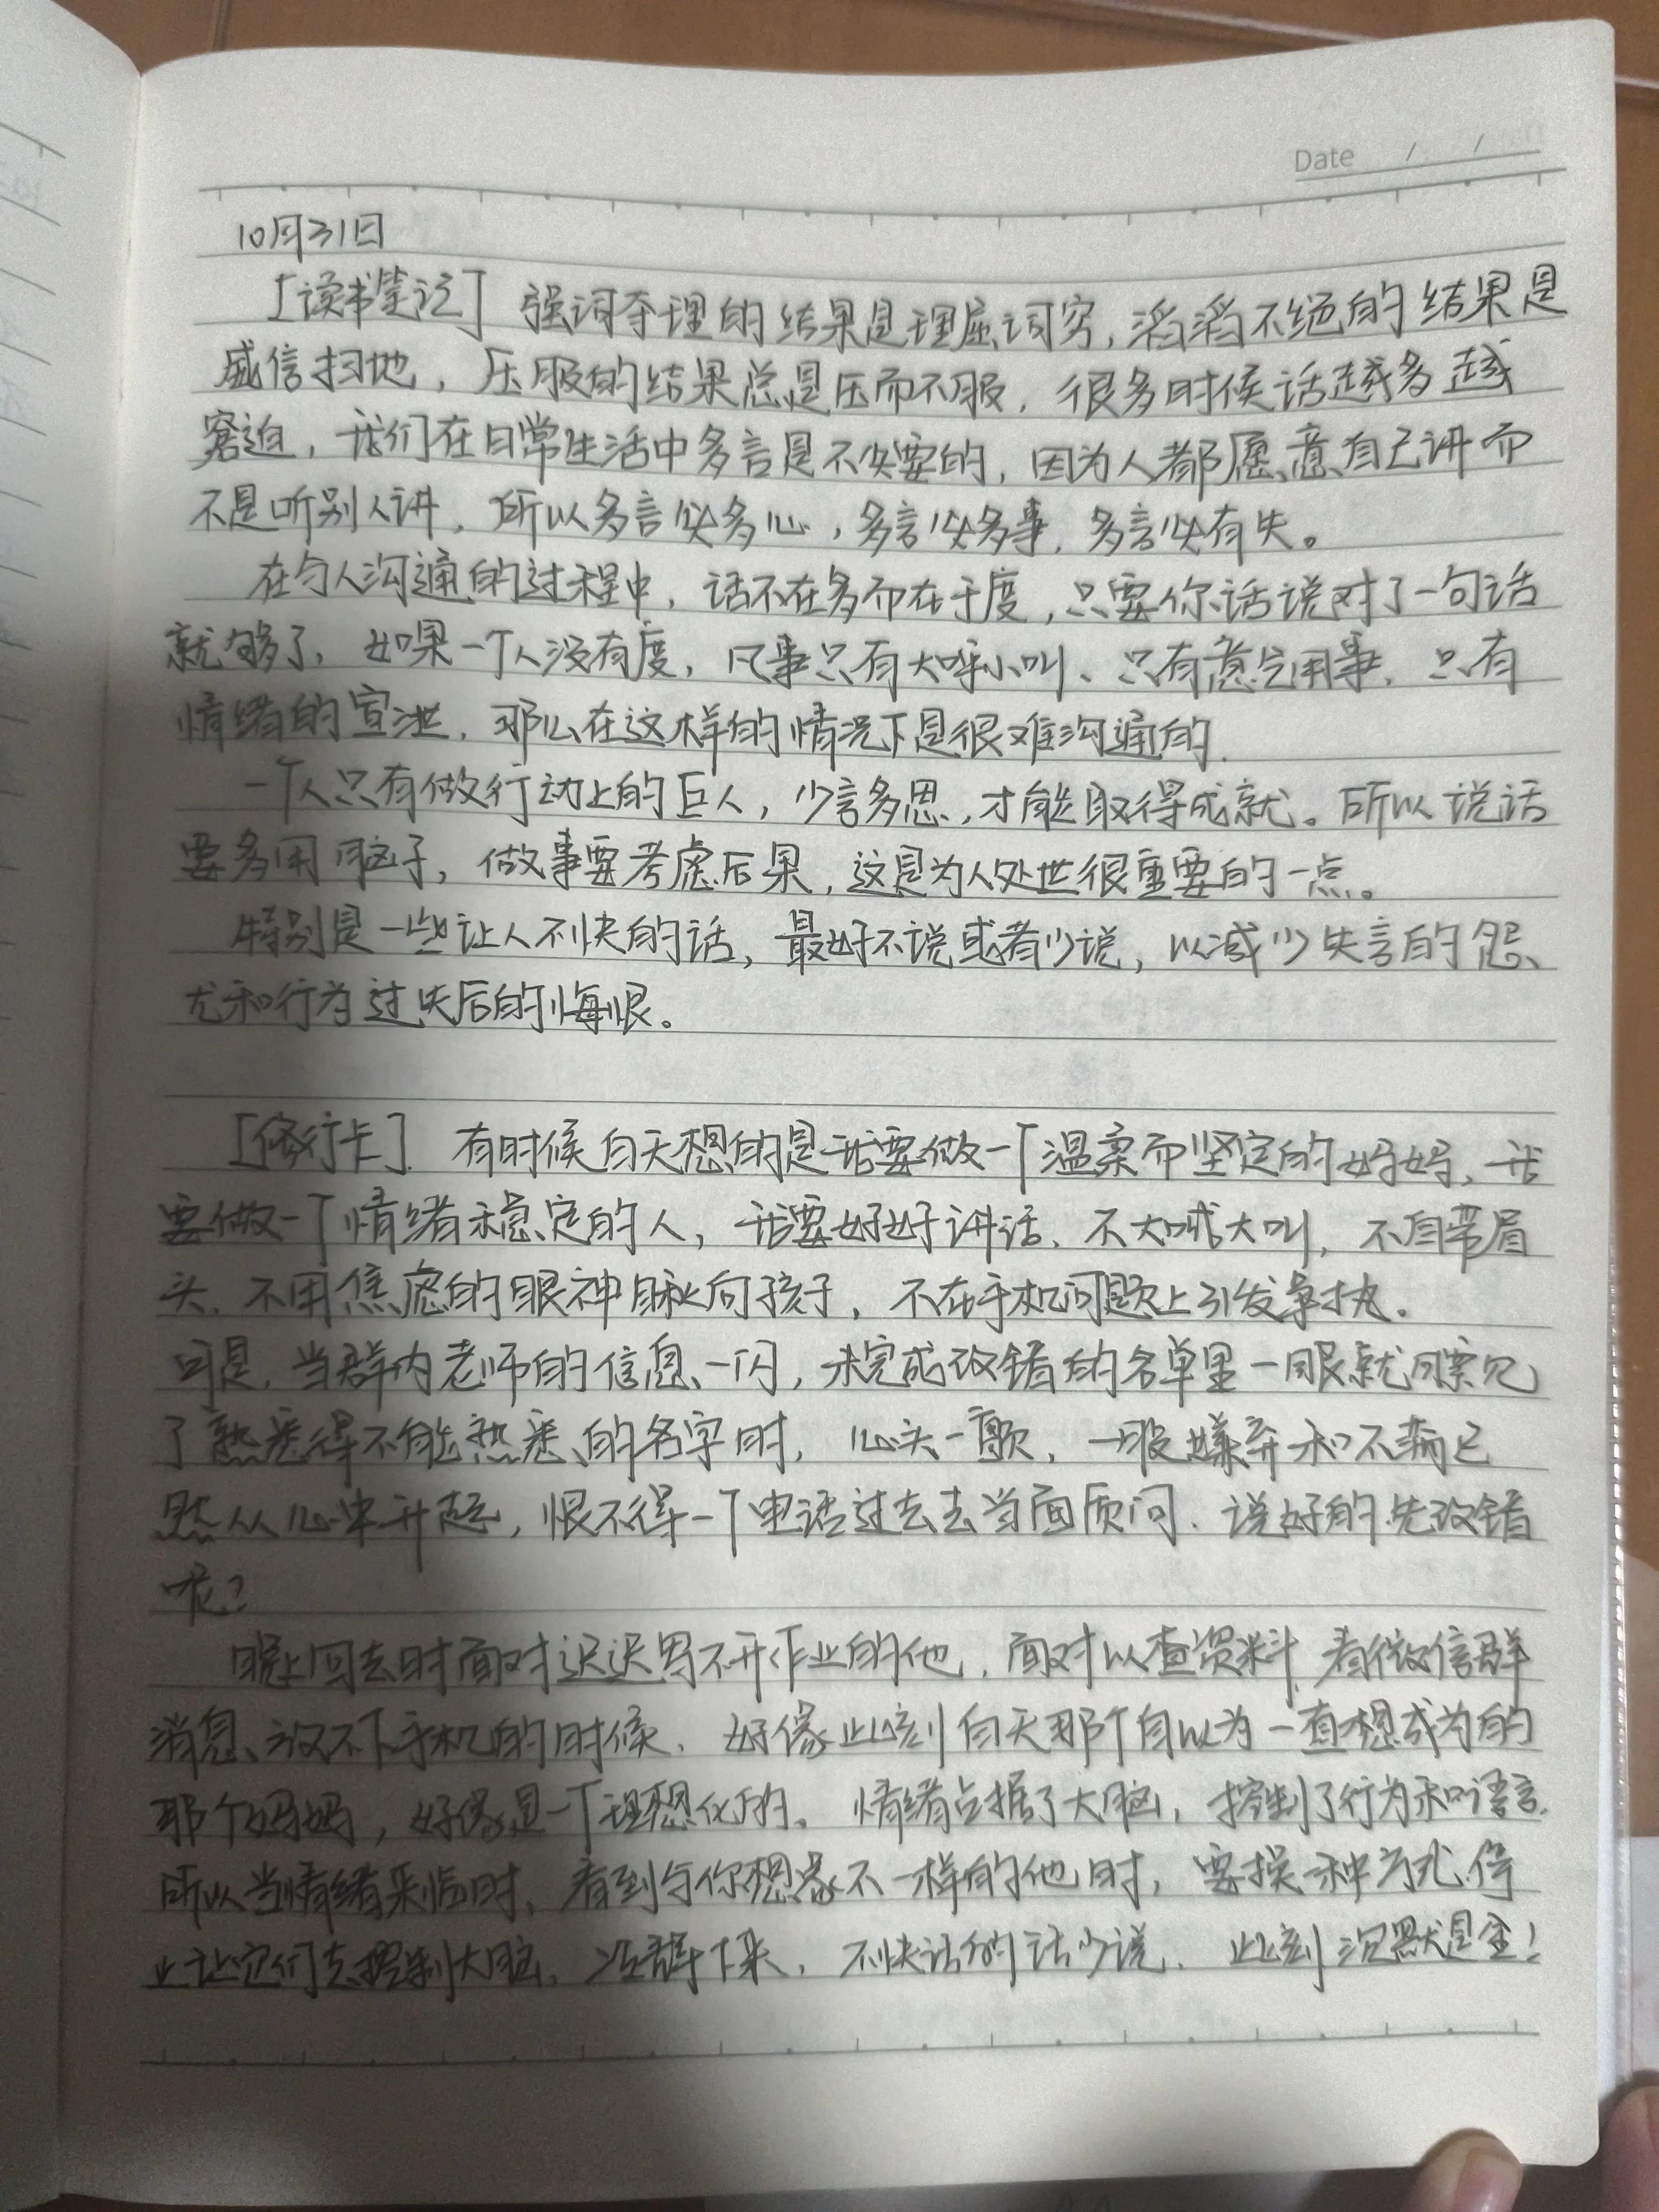 Date / /
10月31日
[读书笔记] 强词夺理的结果是理屈词穷,滔滔不绝的结果是
威信扫地,压服的结果总是压而不服.很多时候话越多越
窘迫,我们在日常生活中多言是不必要的,因为人都愿意自己讲而
不是听别人讲,所以多言必多心,多言必多事,多言必有失。
在与人沟通的过程中,话不在多而在于度,只要你话说对了一句话
就够了,如果一个人没有度,凡事只有大呼小叫、只有意气用事、只有
情绪的宣泄,那么在这样的情况下是很难沟通的.
一个人只有做行动上的巨人,少言多思,才能取得成就。所以说话
要多用脑子,做事要考虑后果,这是为人处世很重要的一点。
特别是一些让人不快的话,最好不说或者少说,以减少失言的怨
尤和行为过失后的悔恨。
[修行卡]. 有时候白天想的是我要做一个温柔而坚定的妈妈、我
要做一个情绪稳定的人,我要好好讲话、不大喊大叫,不自带眉
头.不用焦虑的眼神瞅向孩子,不在手机问题上引发争执。
可是,当群内老师的信息一闪,未完成改错的名单里一眼就瞟见
了熟悉得不能熟悉的名字时,心头一颤,一股嫌弃和不满已
然从心中升起,恨不得一个电话过去去当面质问.说好的先改错
呢?
晚上回去时面对迟迟写不开作业的他,面对以查资料、看微信群
消息、放不下手机的时候.好像此刻白天那个自以为一直想成为的
那个妈妈,好像是一个理想化的。情绪占据了大脑,控制了行为和语言.
所以当情绪来临时、看到与你想象不一样的他时,要换种方式停
止让它们去控制大脑.冷静下来.不快话的话少说.此刻沉默是金!